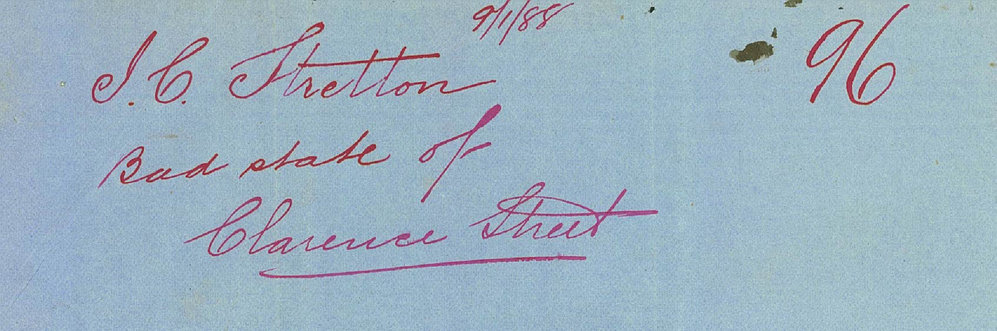 9/1/88
J. C. Stretton
96
Bad state of
Clarence Street